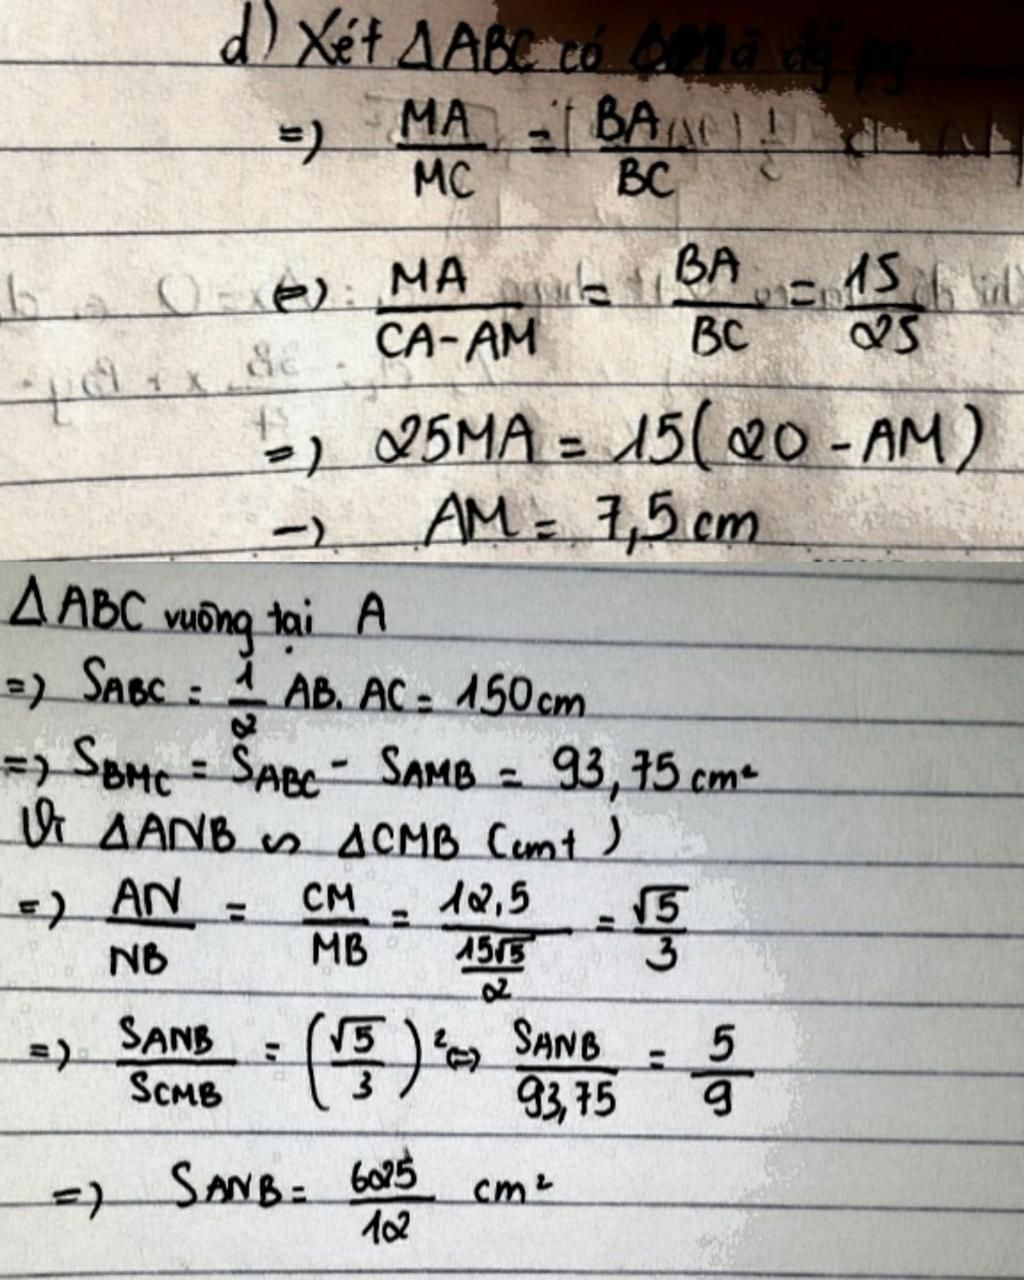 d) Xét ΔABC có BM là đg pg
=> MA/MC = BA/BC
<=> MA/(CA-AM) = BA/BC = 15/25
=> 25MA = 15(20 - AM)
-> AM = 7,5 cm
ΔABC vuông tại A
=> SABC = 1/2 AB. AC = 150 cm
=> SBMC = SABC - SAMB = 93,75 cm²
Vì ΔANB ∽ ΔCMB (cmt)
=> AN/NB = CM/MB = 12,5/(15√5/2) = √5/3
=> SANB/SCMB = (√5/3)² <=> SANB/93,75 = 5/9
=> SANB = 625/12 cm²